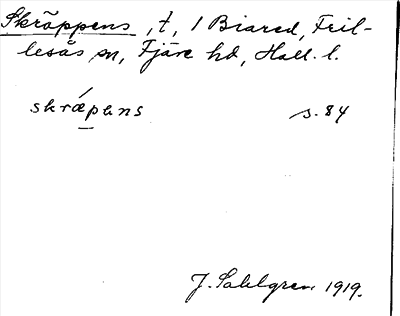 Skräppens, t, 1 Biared, Fril-
lesås sn, Fjäre hd, Hall. l.
skrǽ̱pens s. 84
J. Sahlgren 1919.